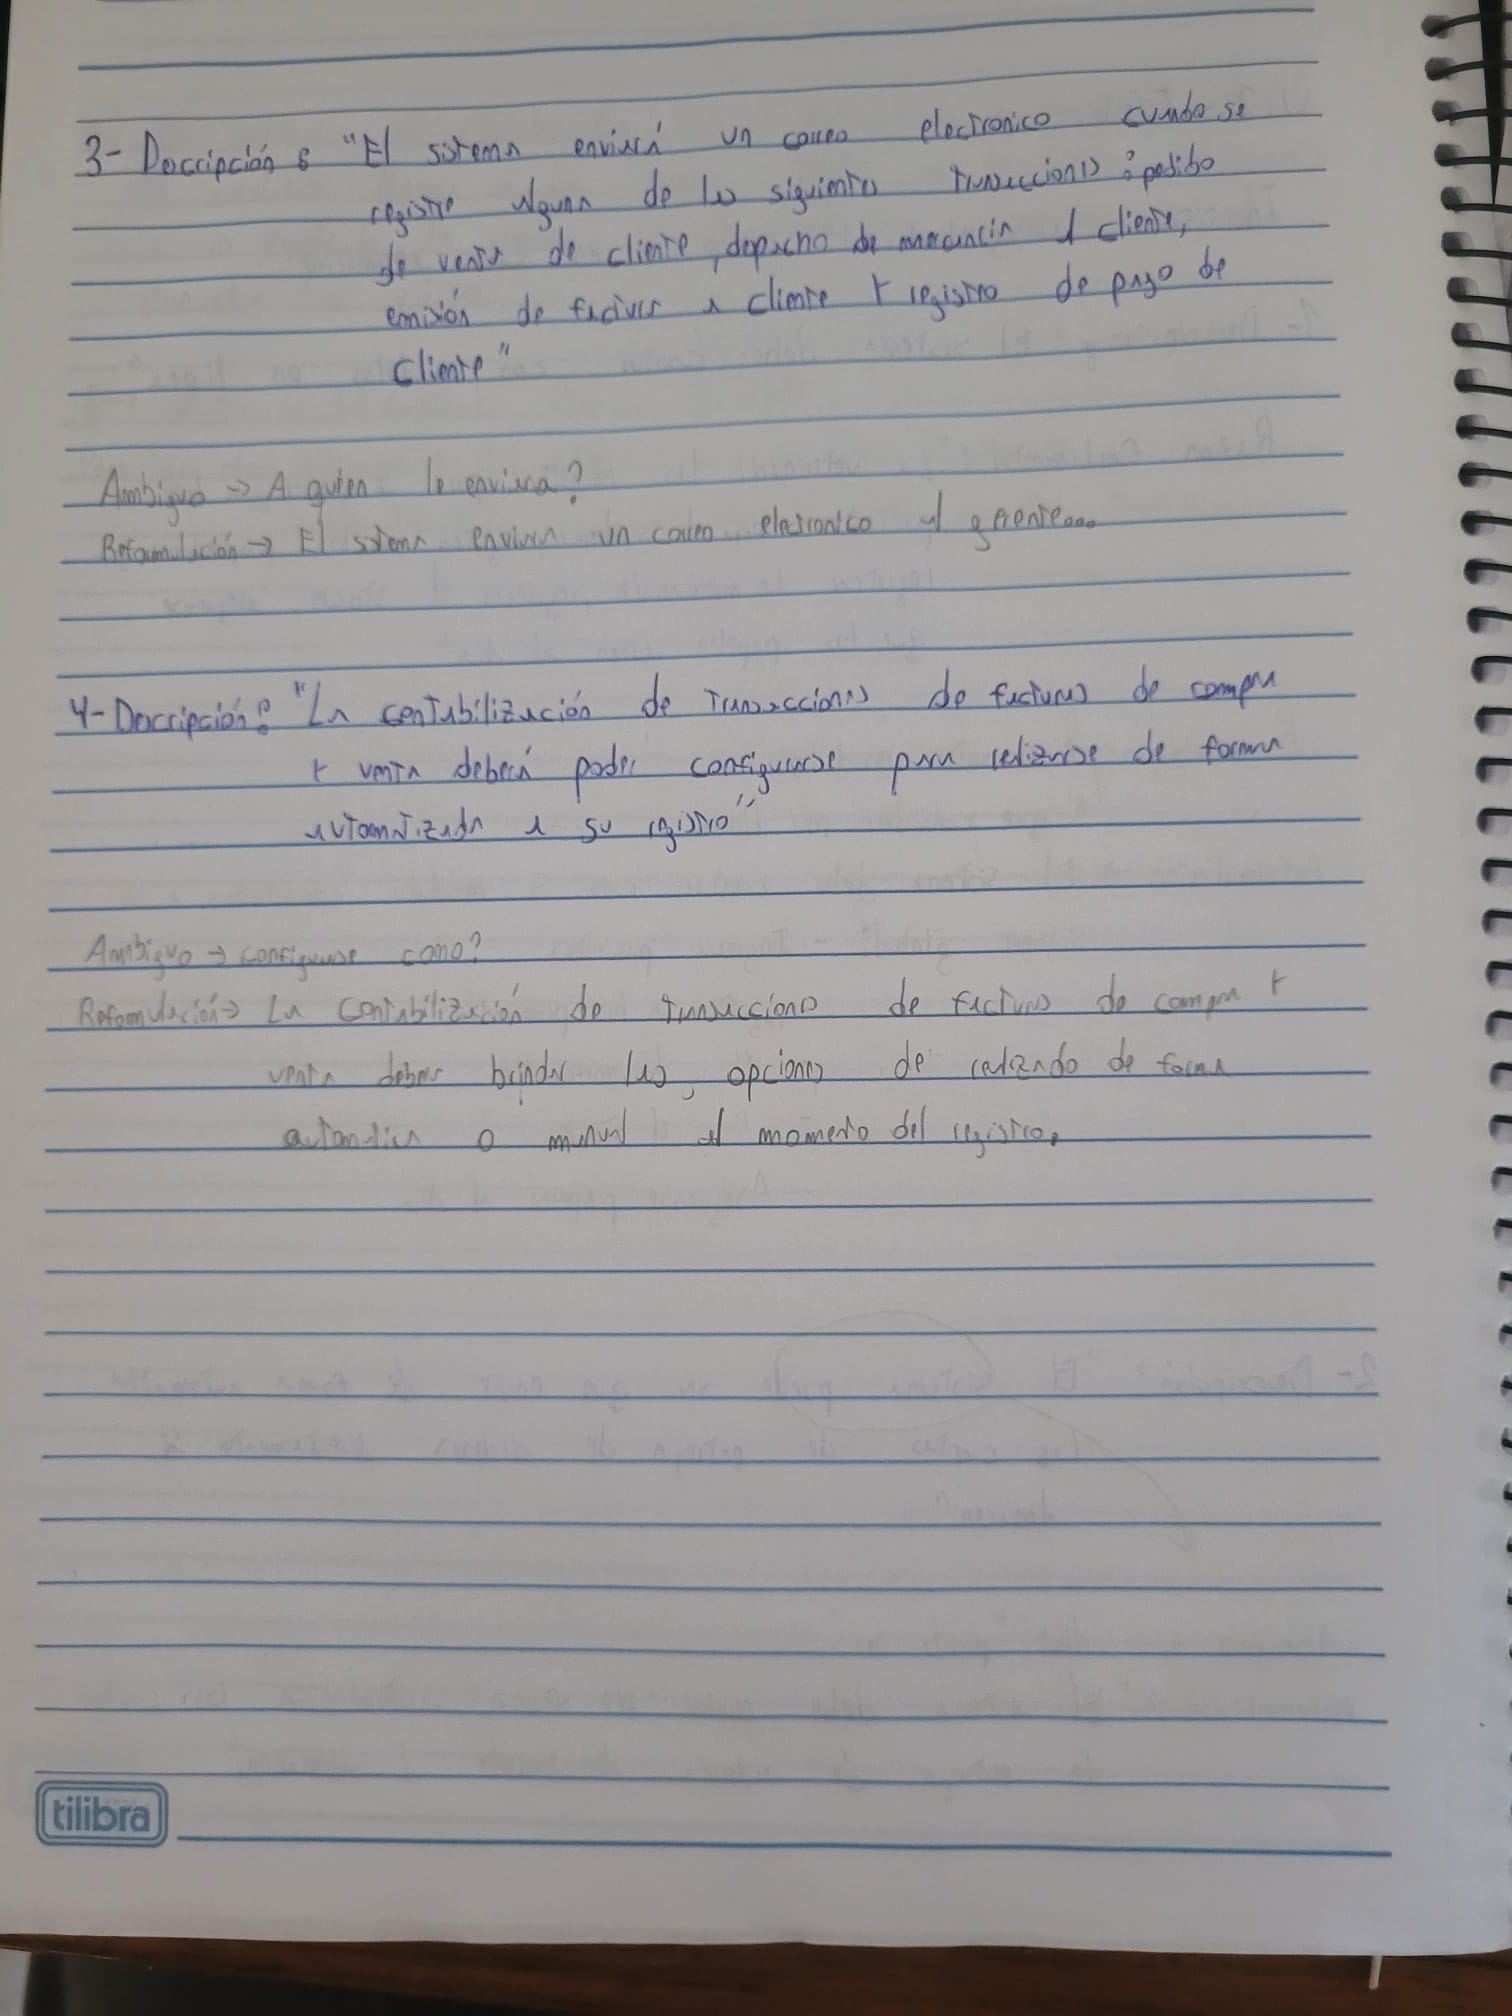 3- Descripción: "El sistema enviará un correo electronico cuando se
registre alguna de las siguientes transacciones: pedido
de venta de cliente, despacho de mercancia al cliente,
emisión de factura a cliente y registro de pago de
cliente"
Ambiguo → A quien le enviara?
Reformulación → El sistema enviara un correo electronico al gerente...
4- Descripción: "La contabilización de transacciones de facturas de compra
y venta deberá poder configurarse para realizarse de forma
automatizada a su registro"
Ambiguo → configurarse como?
Reformulación → La contabilización de transacciones de facturas de compra y
venta debera brindar las opciones de realizando de forma
automatica o manual al momento del registro.
tilibra